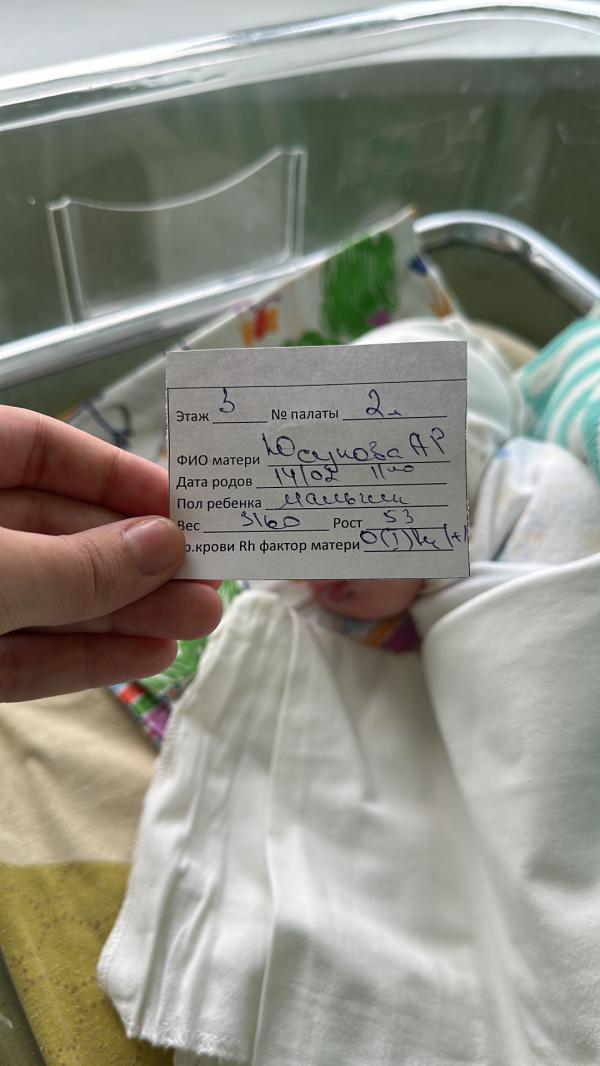 Этаж 3 № палаты 2
ФИО матери Юсупова АР
Дата родов 14/02 11
Пол ребенка мальчик
Вес 3160 Рост 53
р.крови Rh фактор матери O(I) Rh (+)